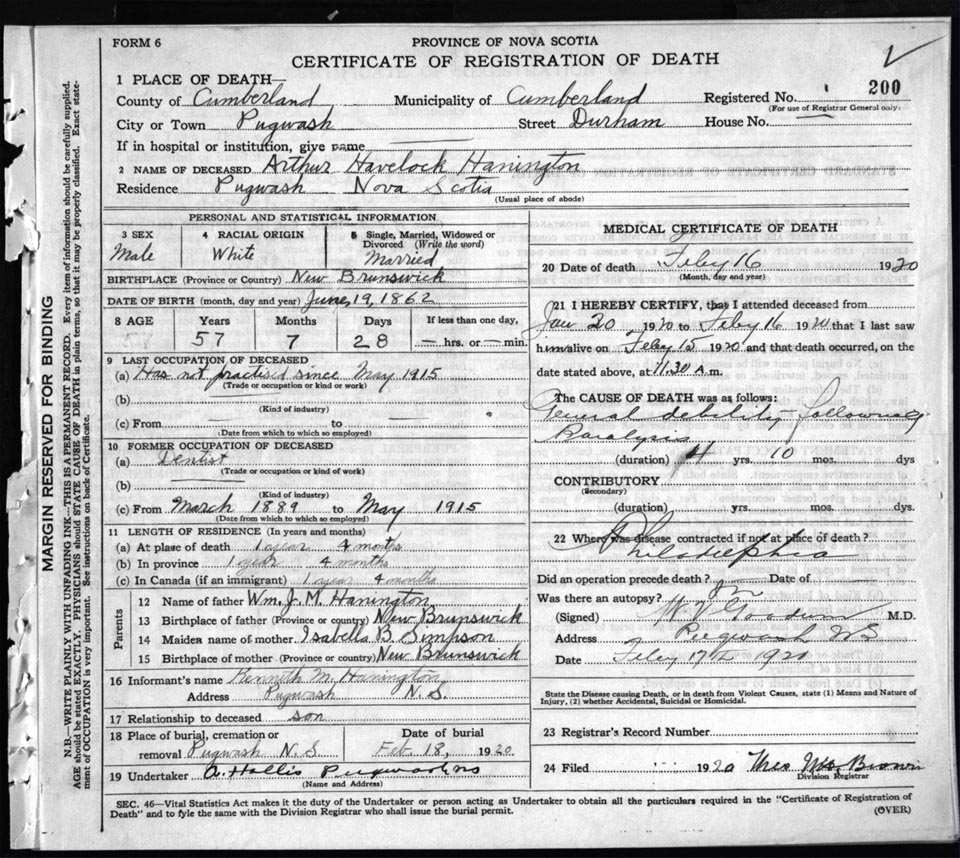 FORM 6
PROVINCE OF NOVA SCOTIA
CERTIFICATE OF REGISTRATION OF DEATH
1 PLACE OF DEATH—
County of Cumberland Municipality of Cumberland Registered No. 200
(For use of Registrar General only)
City or Town Pugwash Street Durham House No.
If in hospital or institution, give name
2 NAME OF DECEASED Arthur Havelock Hanington
Residence Pugwash Nova Scotia
(Usual place of abode)
PERSONAL AND STATISTICAL INFORMATION
3 SEX 4 RACIAL ORIGIN 5 Single, Married, Widowed or Divorced (Write the word)
Male White Married
BIRTHPLACE (Province or Country) New Brunswick
DATE OF BIRTH (month, day and year) June, 19, 1862
8 AGE Years Months Days If less than one day,
57 7 28 — hrs. or — min.
9 LAST OCCUPATION OF DECEASED
(a) Has not practised since May 1915
(Trade or occupation or kind of work)
(b)
(Kind of industry)
(c) From to
(Date from which to which so employed)
10 FORMER OCCUPATION OF DECEASED
(a) Dentist
(Trade or occupation or kind of work)
(b)
(Kind of industry)
(c) From March 1889 to May 1915
(Date from which to which so employed)
11 LENGTH OF RESIDENCE (In years and months)
(a) At place of death 1 year 4 months
(b) In province 1 year 4 months
(c) In Canada (if an immigrant) 1 year 4 months
Parents
12 Name of father Wm. J. M. Hanington
13 Birthplace of father (Province or country) New Brunswick
14 Maiden name of mother Isabella B. Simpson
15 Birthplace of mother (Province or country) New Brunswick
16 Informant's name Kenneth M. Hanington
Address Pugwash N.S.
17 Relationship to deceased son
18 Place of burial, cremation or removal Pugwash N.S. Date of burial Feb. 18, 1920
19 Undertaker A. Hollis Pugwash NS
(Name and Address)
MEDICAL CERTIFICATE OF DEATH
20 Date of death Feby 16 1920
(Month, day and year)
21 I HEREBY CERTIFY, that I attended deceased from
Jan 20 1920 to Feby 16 1920 that I last saw
him alive on Feby 15 1920 and that death occurred, on the
date stated above, at 11.30 A.m.
The CAUSE OF DEATH was as follows:
General debility – following
Paralysis
(duration) 4 yrs. 10 mos. dys
CONTRIBUTORY
(Secondary)
(duration) yrs. mos. dys.
22 Where was disease contracted if not at place of death?
Philadelphia
Did an operation precede death? Date of
Was there an autopsy?
(Signed) M.D.
Address Pugwash NS
Date Feby 17th 1920
State the Disease causing Death, or in death from Violent Causes, state (1) Means and Nature of
Injury, (2) whether Accidental, Suicidal or Homicidal.
23 Registrar's Record Number
24 Filed 1920 Brown
Division Registrar
SEC. 46—Vital Statistics Act makes it the duty of the Undertaker or person acting as Undertaker to obtain all the particulars required in the "Certificate of Registration of
Death" and to fyle the same with the Division Registrar who shall issue the burial permit.
(OVER)
MARGIN RESERVED FOR BINDING
N.B.—WRITE PLAINLY WITH UNFADING INK—THIS IS A PERMANENT RECORD. Every item of information should be carefully supplied.
AGE should be stated EXACTLY. PHYSICIANS should STATE CAUSE OF DEATH in plain terms, so that it may be properly classified. Exact statement of OCCUPATION is very important. See instructions on back of Certificate.